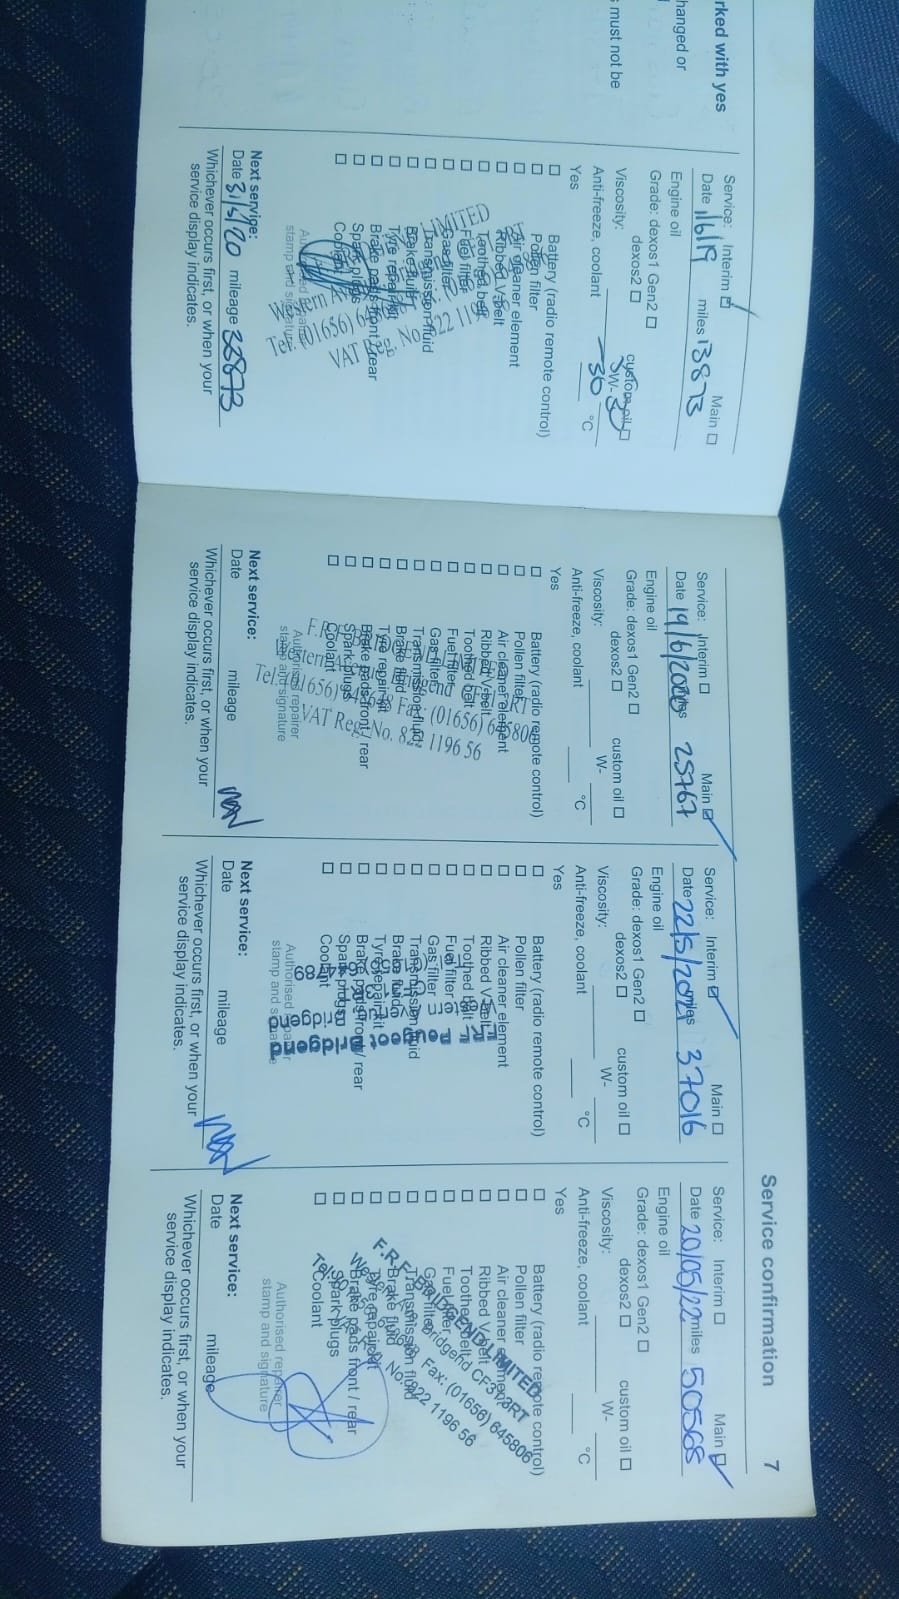 rked with yes
hanged or
s must not be
Service: Interim Main
Date 1/6/19 miles 13873
Engine oil
Grade: dexos1 Gen2
dexos2 custom oil
Viscosity: W-30
Anti-freeze, coolant -30 °C
Yes
Battery (radio remote control)
Pollen filter
Air cleaner element
Ribbed V-belt
Toothed belt
Fuel filter
Gas filter
Transmission fluid
Brake fluid
Tyre repair kit
Brake pads front / rear
Spark plugs
Coolant
LIMITED
Western
Tel: (01656)
VAT
Authorised repairer
stamp and signature
Next service:
Date mileage
Whichever occurs first, or when your
service display indicates.
Service confirmation
Service: Interim Main
Date 19/6/2020 miles 25767
Engine oil
Grade: dexos1 Gen2
dexos2 custom oil
Viscosity: W-
Anti-freeze, coolant °C
Yes
Battery (radio remote control)
Pollen filter
Air cleaner element
Ribbed V-belt
Toothed belt
Fuel filter
Gas filter
Transmission fluid
Brake fluid
Tyre repair kit
Brake pads front / rear
Spark plugs
Coolant
Fax: (01656) 645806
VAT Reg. No. 822 1196 56
Authorised repairer
stamp and signature
Next service:
Date mileage
Whichever occurs first, or when your
service display indicates.
Service: Interim Main
Date 22/5/2021 miles 37016
Engine oil
Grade: dexos1 Gen2
dexos2 custom oil
Viscosity: W-
Anti-freeze, coolant °C
Yes
Battery (radio remote control)
Pollen filter
Air cleaner element
Ribbed V-belt
Toothed belt
Fuel filter
Gas filter
Transmission fluid
Brake fluid
Tyre repair kit
Brake pads front / rear
Spark plugs
Coolant
Authorised repairer
stamp and signature
Next service:
Date mileage
Whichever occurs first, or when your
service display indicates.
Service: Interim Main
Date 20/05/22 miles 50568
Engine oil
Grade: dexos1 Gen2
dexos2 custom oil
Viscosity: W-
Anti-freeze, coolant °C
Yes
Battery (radio remote control)
Pollen filter
Air cleaner element
Ribbed V-belt
Toothed belt
Fuel filter
Gas filter
Transmission fluid
Brake fluid
Tyre repair kit
Brake pads front / rear
Spark plugs
Coolant
F.R.F. BRIDGEND LIMITED
Bridgend CF31 3RT
Fax: (01656) 645806
No. 822 1196 56
Authorised repairer
stamp and signature
Next service:
Date mileage
Whichever occurs first, or when your
service display indicates.
7